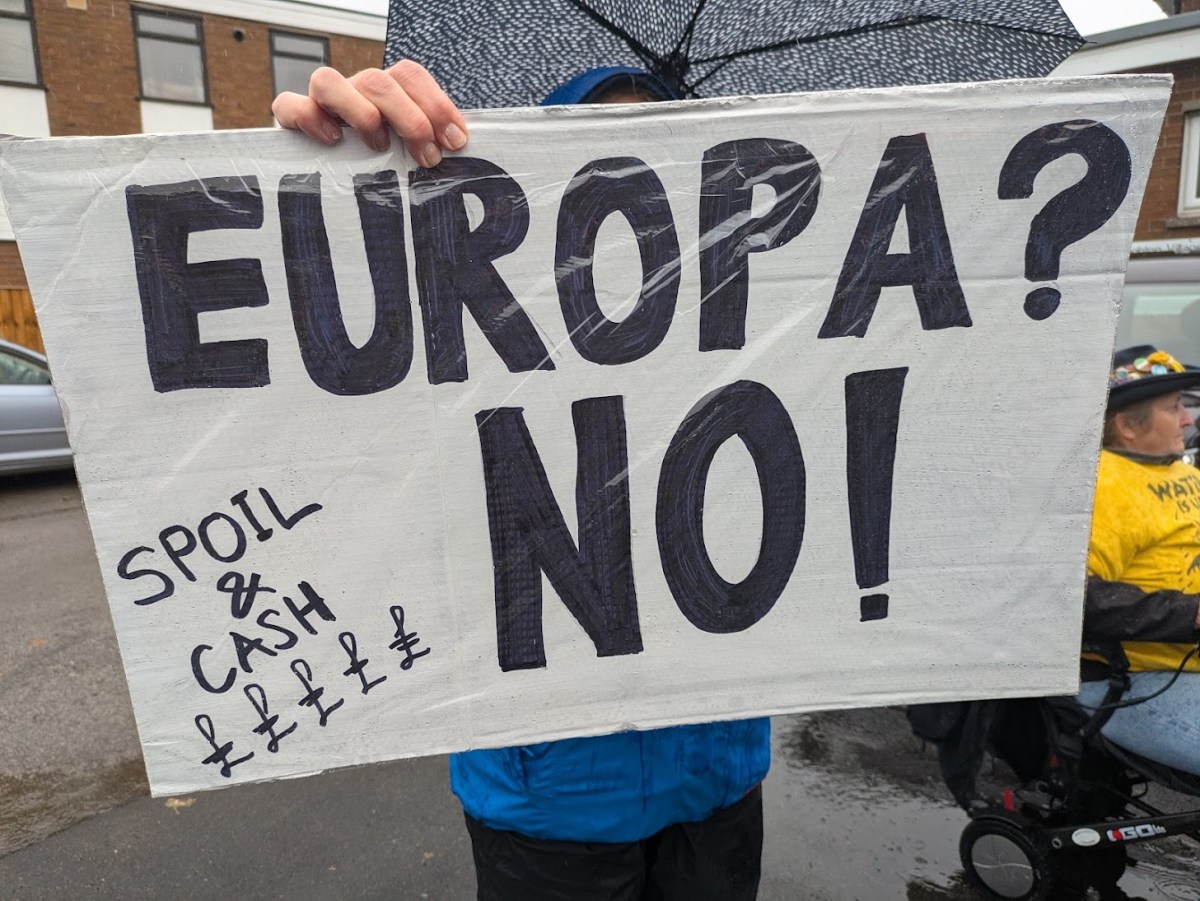 EUROPA?
NO!
SPOIL
&
CASH
£££££
iGO